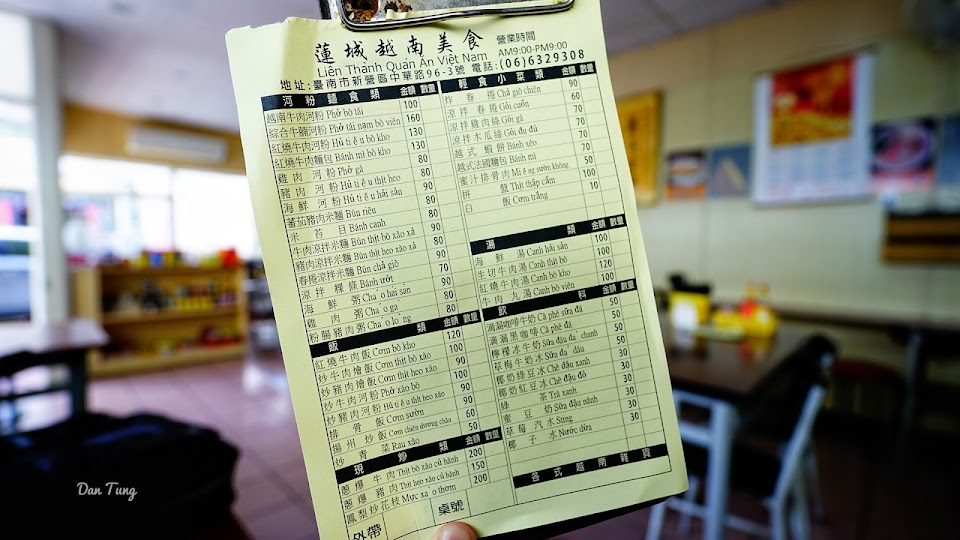 蓮城越南美食 營業時間
Liên Thành Quán Ăn Việt Nam AM9:00-PM9:00
地址:臺南市新營區中華路96-3號 電話:(06)6329308
河粉麵食類 金額 數量
越南牛肉河粉 Phở bò tái 100
綜合牛腩河粉 Phở tái nạm bò viên 160
紅燒牛肉河粉 Hủ tiếu bò kho 130
紅燒牛肉麵包 Bánh mì bò kho 130
雞肉河粉 Phở gà 80
豬肉河粉 Hủ tiếu thịt heo 80
海鮮河粉 Hủ tiếu hải sản 90
蕃茄豬肉米麵 Bún riêu 80
米苔目 Bánh canh 80
牛肉涼拌米麵 Bún thịt bò xào xả 90
豬肉涼拌米麵 Bún thịt heo xào xả 80
春捲涼拌米麵 Bún chả giò 90
涼拌粿條 Bánh ướt 70
海鮮粥 Cháo hải sản 90
雞肉粥 Cháo gà 80
粉腸豬肉粥 Cháo lòng 80
飯類 金額 數量
紅燒牛肉飯 Cơm bò kho 120
炒牛肉燴飯 Cơm thịt bò xào 100
炒豬肉燴飯 Cơm thịt heo xào 90
炒牛肉河粉 100
炒豬肉河粉 Hủ tiếu thịt heo xào 90
排骨飯 Cơm sườn 90
揚州炒飯 Cơm chiên dương châu 60
炒青菜 Rau xào 50
現炒類 金額 數量
蔥爆牛肉 Thịt bò xào củ hành 200
蔥爆豬肉 Thịt heo xào củ hành 150
鳳梨炒花枝 Mực xào thơm 200
外帶 桌號
輕食小菜類 金額 數量
炸春捲 Chả giò chiên 90
涼拌春捲 Gỏi cuốn 60
涼拌雞肉絲 Gỏi gà
涼拌木瓜絲 Gỏi đu đủ
越式蝦餅 Bánh xèo
越式法國麵包 Bánh mì
蜜汁排骨肉 Miếng nướng không
拼盤 Thịt thập cẩm
白飯 Cơm trắng 10
湯類 金額 數量
海鮮湯 Canh hải sản 100
生切牛肉湯 Canh thịt bò 100
紅燒牛肉湯 Canh bò kho 120
牛肉丸湯 Canh bò viên 100
飲料 金額 數量
滴漏咖啡牛奶 Cà phê sữa đá 50
滴漏黑咖啡 Cà phê đá 50
檸檬冰牛奶 Sữa đá chanh 50
草莓牛奶冰 Sữa đá dâu 50
椰奶綠豆冰 Chè đậu xanh 30
椰奶紅豆冰 Chè đậu đỏ 30
綠茶 Trà xanh 30
蜜豆奶 Sữa đậu nành 30
草莓汽水 Sting 30
椰子水 Nước dừa 30
各式越南雜貨
Dan Tung